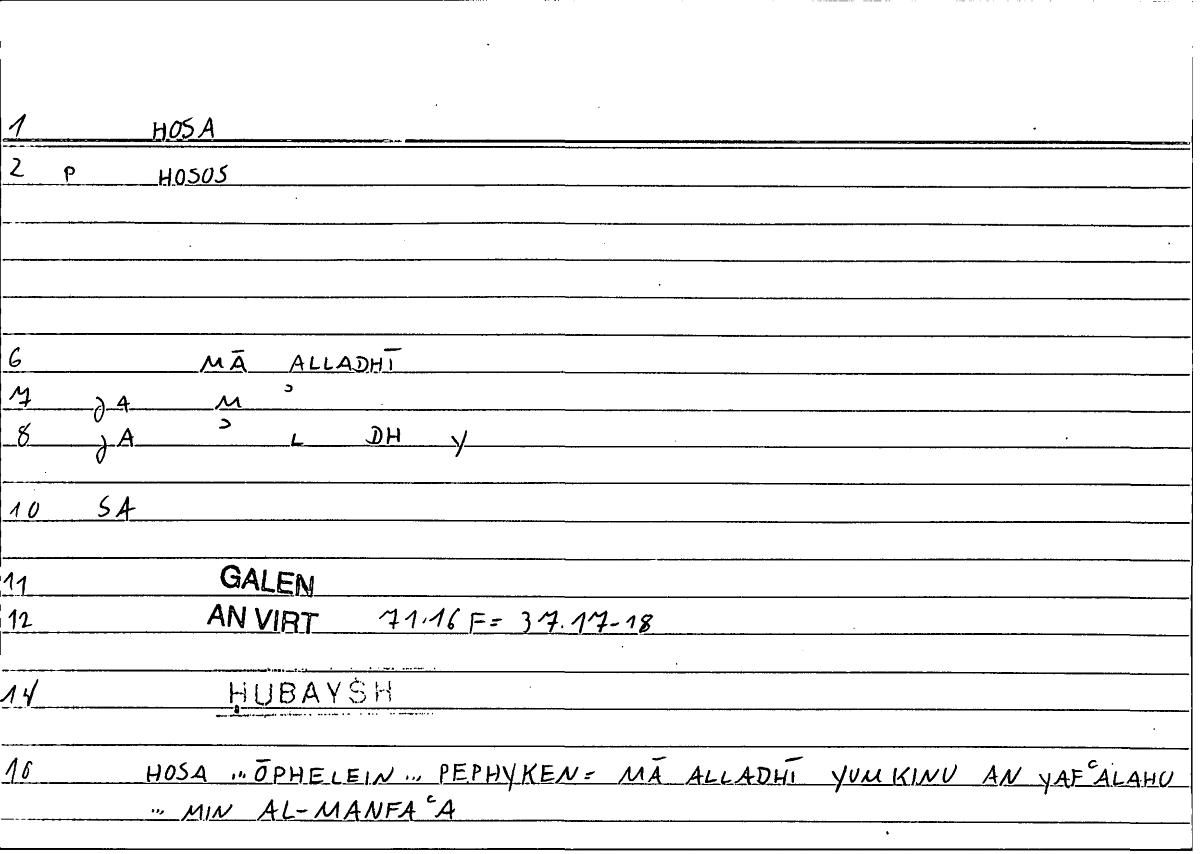 1 HOSA
2 P HOSOS
6 MĀ ALLADHĪ
7 JA M ʾ
8 JA ʾ L DH Y
10 SA
11 GALEN
12 AN VIRT 71.16 F= 37.17-18
14 ḤUBAYSH
16 HOSA ... ŌPHELEIN ... PEPHYKEN= MĀ ALLADHĪ YUMKINU AN YAFᶜALAHU
... MIN AL-MANFAᶜA